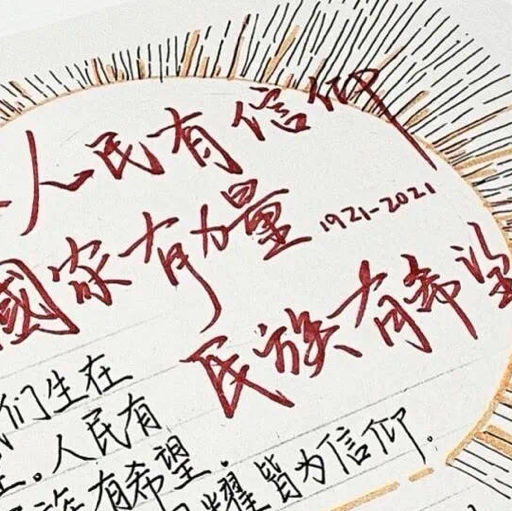 人民有信仰
國家有力量 1921-2021
民族有希望
们生在
。人民有
有希望。
耀皆为信仰.